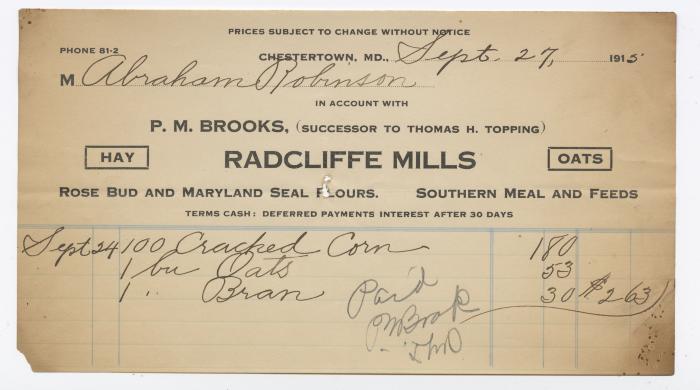 PRICES SUBJECT TO CHANGE WITHOUT NOTICE
PHONE 81-2
CHESTERTOWN, MD., Sept. 27, 1915
M Abraham Robinson
IN ACCOUNT WITH
P. M. BROOKS, (SUCCESSOR TO THOMAS H. TOPPING)
HAY RADCLIFFE MILLS OATS
ROSE BUD AND MARYLAND SEAL FLOURS. SOUTHERN MEAL AND FEEDS
TERMS CASH: DEFERRED PAYMENTS INTEREST AFTER 30 DAYS
Sept 24 100 Cracked Corn 180
1 bu Oats 53
1 " Bran 30 $2 63
Paid
PM Brooks